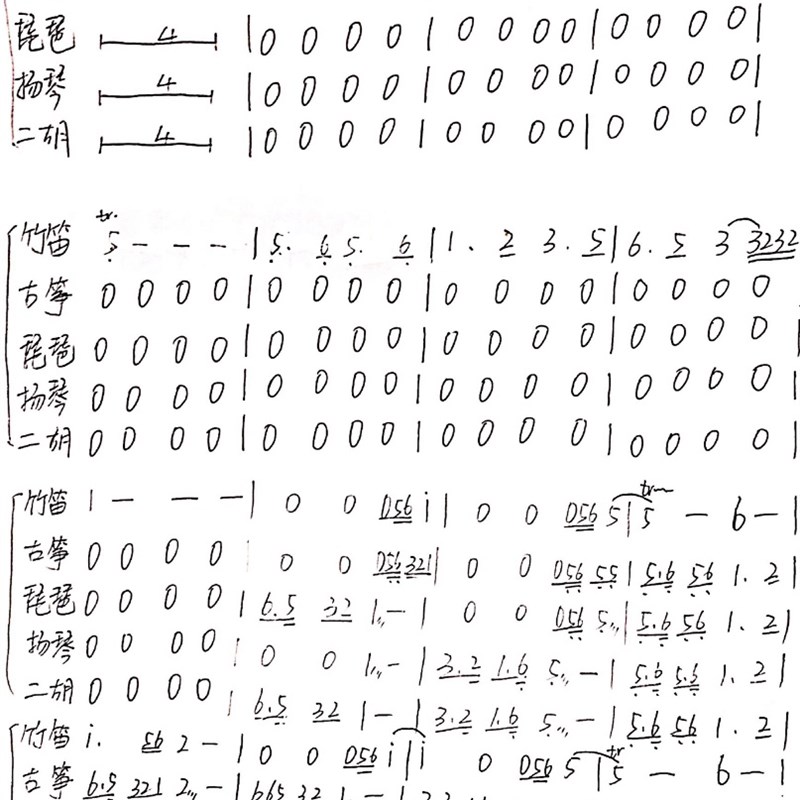 琵琶 4 | 0 0 0 0 | 0 0 0 0 | 0 0 0 0 |
扬琴 4 | 0 0 0 0 | 0 0 0 0 | 0 0 0 0 |
二胡 4 | 0 0 0 0 | 0 0 0 0 | 0 0 0 0 |
tr.
竹笛 5 - - - | 5. 6 5. 6 | 1. 2 3. 5 | 6. 5 3 3232
古筝 0 0 0 0 | 0 0 0 0 | 0 0 0 0 | 0 0 0 0
琵琶 0 0 0 0 | 0 0 0 0 | 0 0 0 0 | 0 0 0 0 |
扬琴 0 0 0 0 | 0 0 0 0 | 0 0 0 0 | 0 0 0 0 |
二胡 0 0 0 0 | 0 0 0 0 | 0 0 0 0 | 0 0 0 0 |
tr
竹笛 1 - - - | 0 0 056 i | 0 0 056 5 | 5 - 6 - |
古筝 0 0 0 0 0 0 056 321 | 0 0 056 55 | 5.6 56 1. 2 |
琵琶 0 0 0 0 | 6.5 32 1 - | 0 0 056 5 | 5.6 56 1. 2 |
扬琴 0 0 0 0 | 0 0 1 - | 3.2 1.6 5 - | 5.6 5.6 1. 2 |
二胡 0 0 0 0 | 6.5 32 1 - | 3.2 1.6 5 - | 5.6 56 1. 2 |
tr
竹笛 i. 56 2 - | 0 0 056 i | i 0 056 5 | 5 - 6 - |
古筝 6.5 321 2 - | 665 32 1 - |